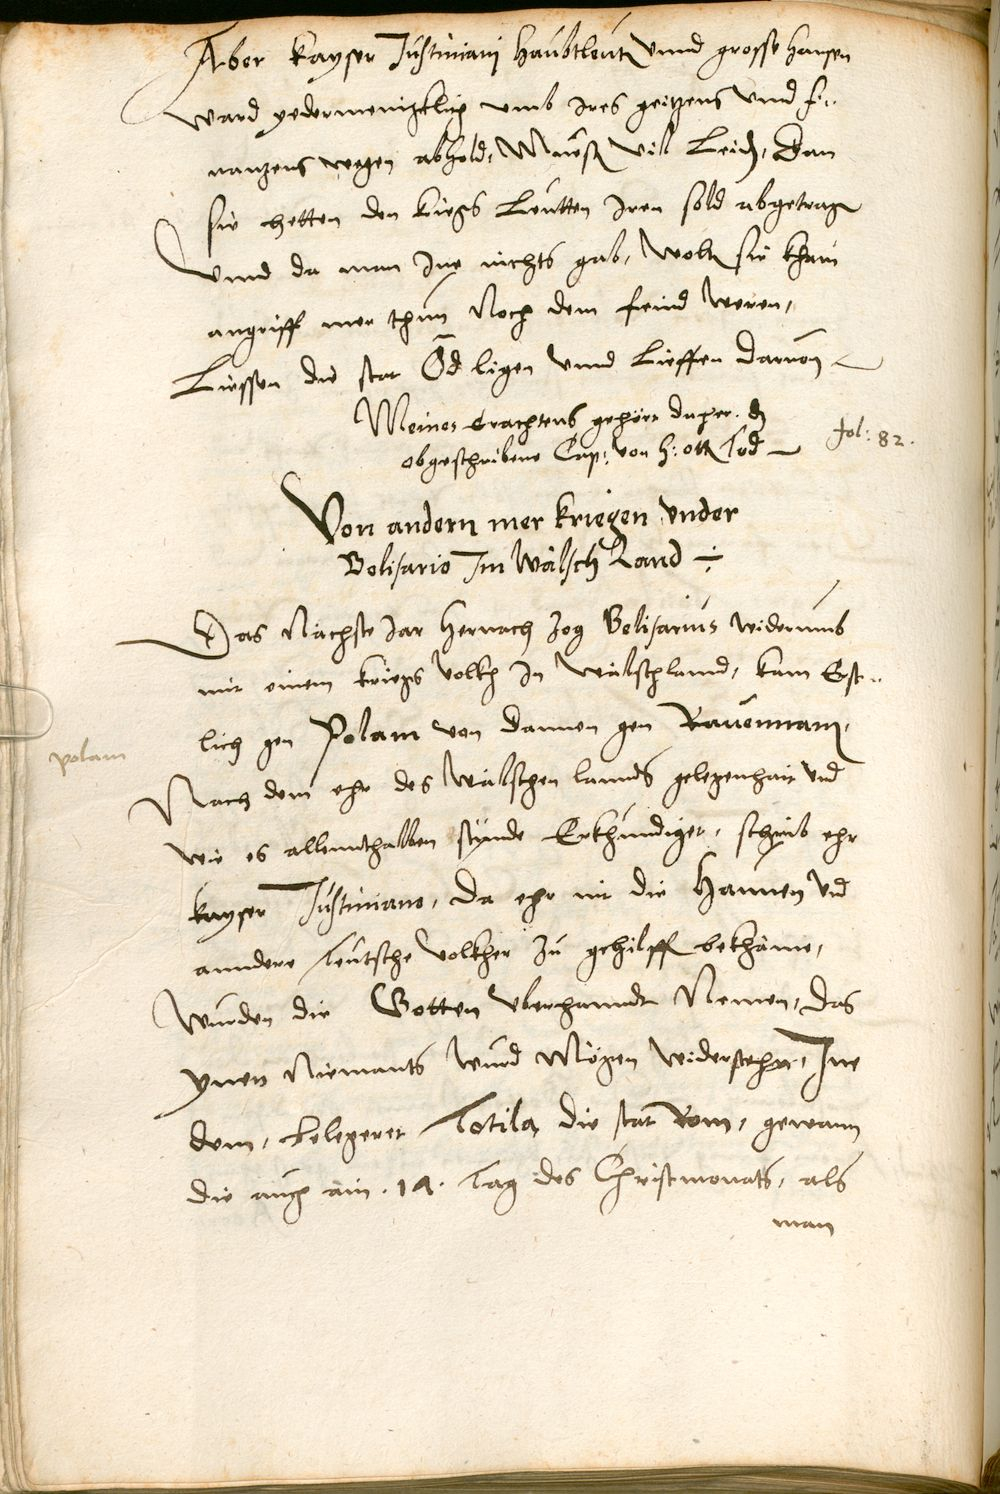 Aber kayser Justiniani haubtleut vnnd grosse hansen
ward yedermenigklich vmb ires geitzens vnnd fi-
nanzens wegen abhold, Muest vil Leiden, Dan
sie hetten den kriegs Leutten iren sold abgetragen
Vnnd da man Ine nichts gab, wolt sie khain
angriff mer thun Noch dem feind weren,
Liessen die stat Öd ligen vnnd Lieffen daruon
Meines erachtens gehört daher. dz
obgeschribene Cap: von h: otten Tod
fol: 82.
Von andern mer kriegen vnder
Belisario Im Wälsch Land ÷
Das Nächste Jar hernach zog Belisarius widerumb
mit einem kriegs volkh In wälschland, kam Erst-
lich gen Polam von dannen gen Rauennam,
polam
Nach dem ehr des Wälschen lannds gelegenhait vnd
wie es allennthalben stünde Erkhundiget, schrib ehr
kayser Justiniano, Da ehr nit die Hannen vnd
anndere teutsche volkher zu gehilff bekhäme,
wurden die Gotten vberhanndt Nemen, das
ynen Niemants wurd Mögen widerstehn, Inn
dem, belegeret Totila die stat Rom, gewann
die auch am .14. tag des Christmonats, als
man